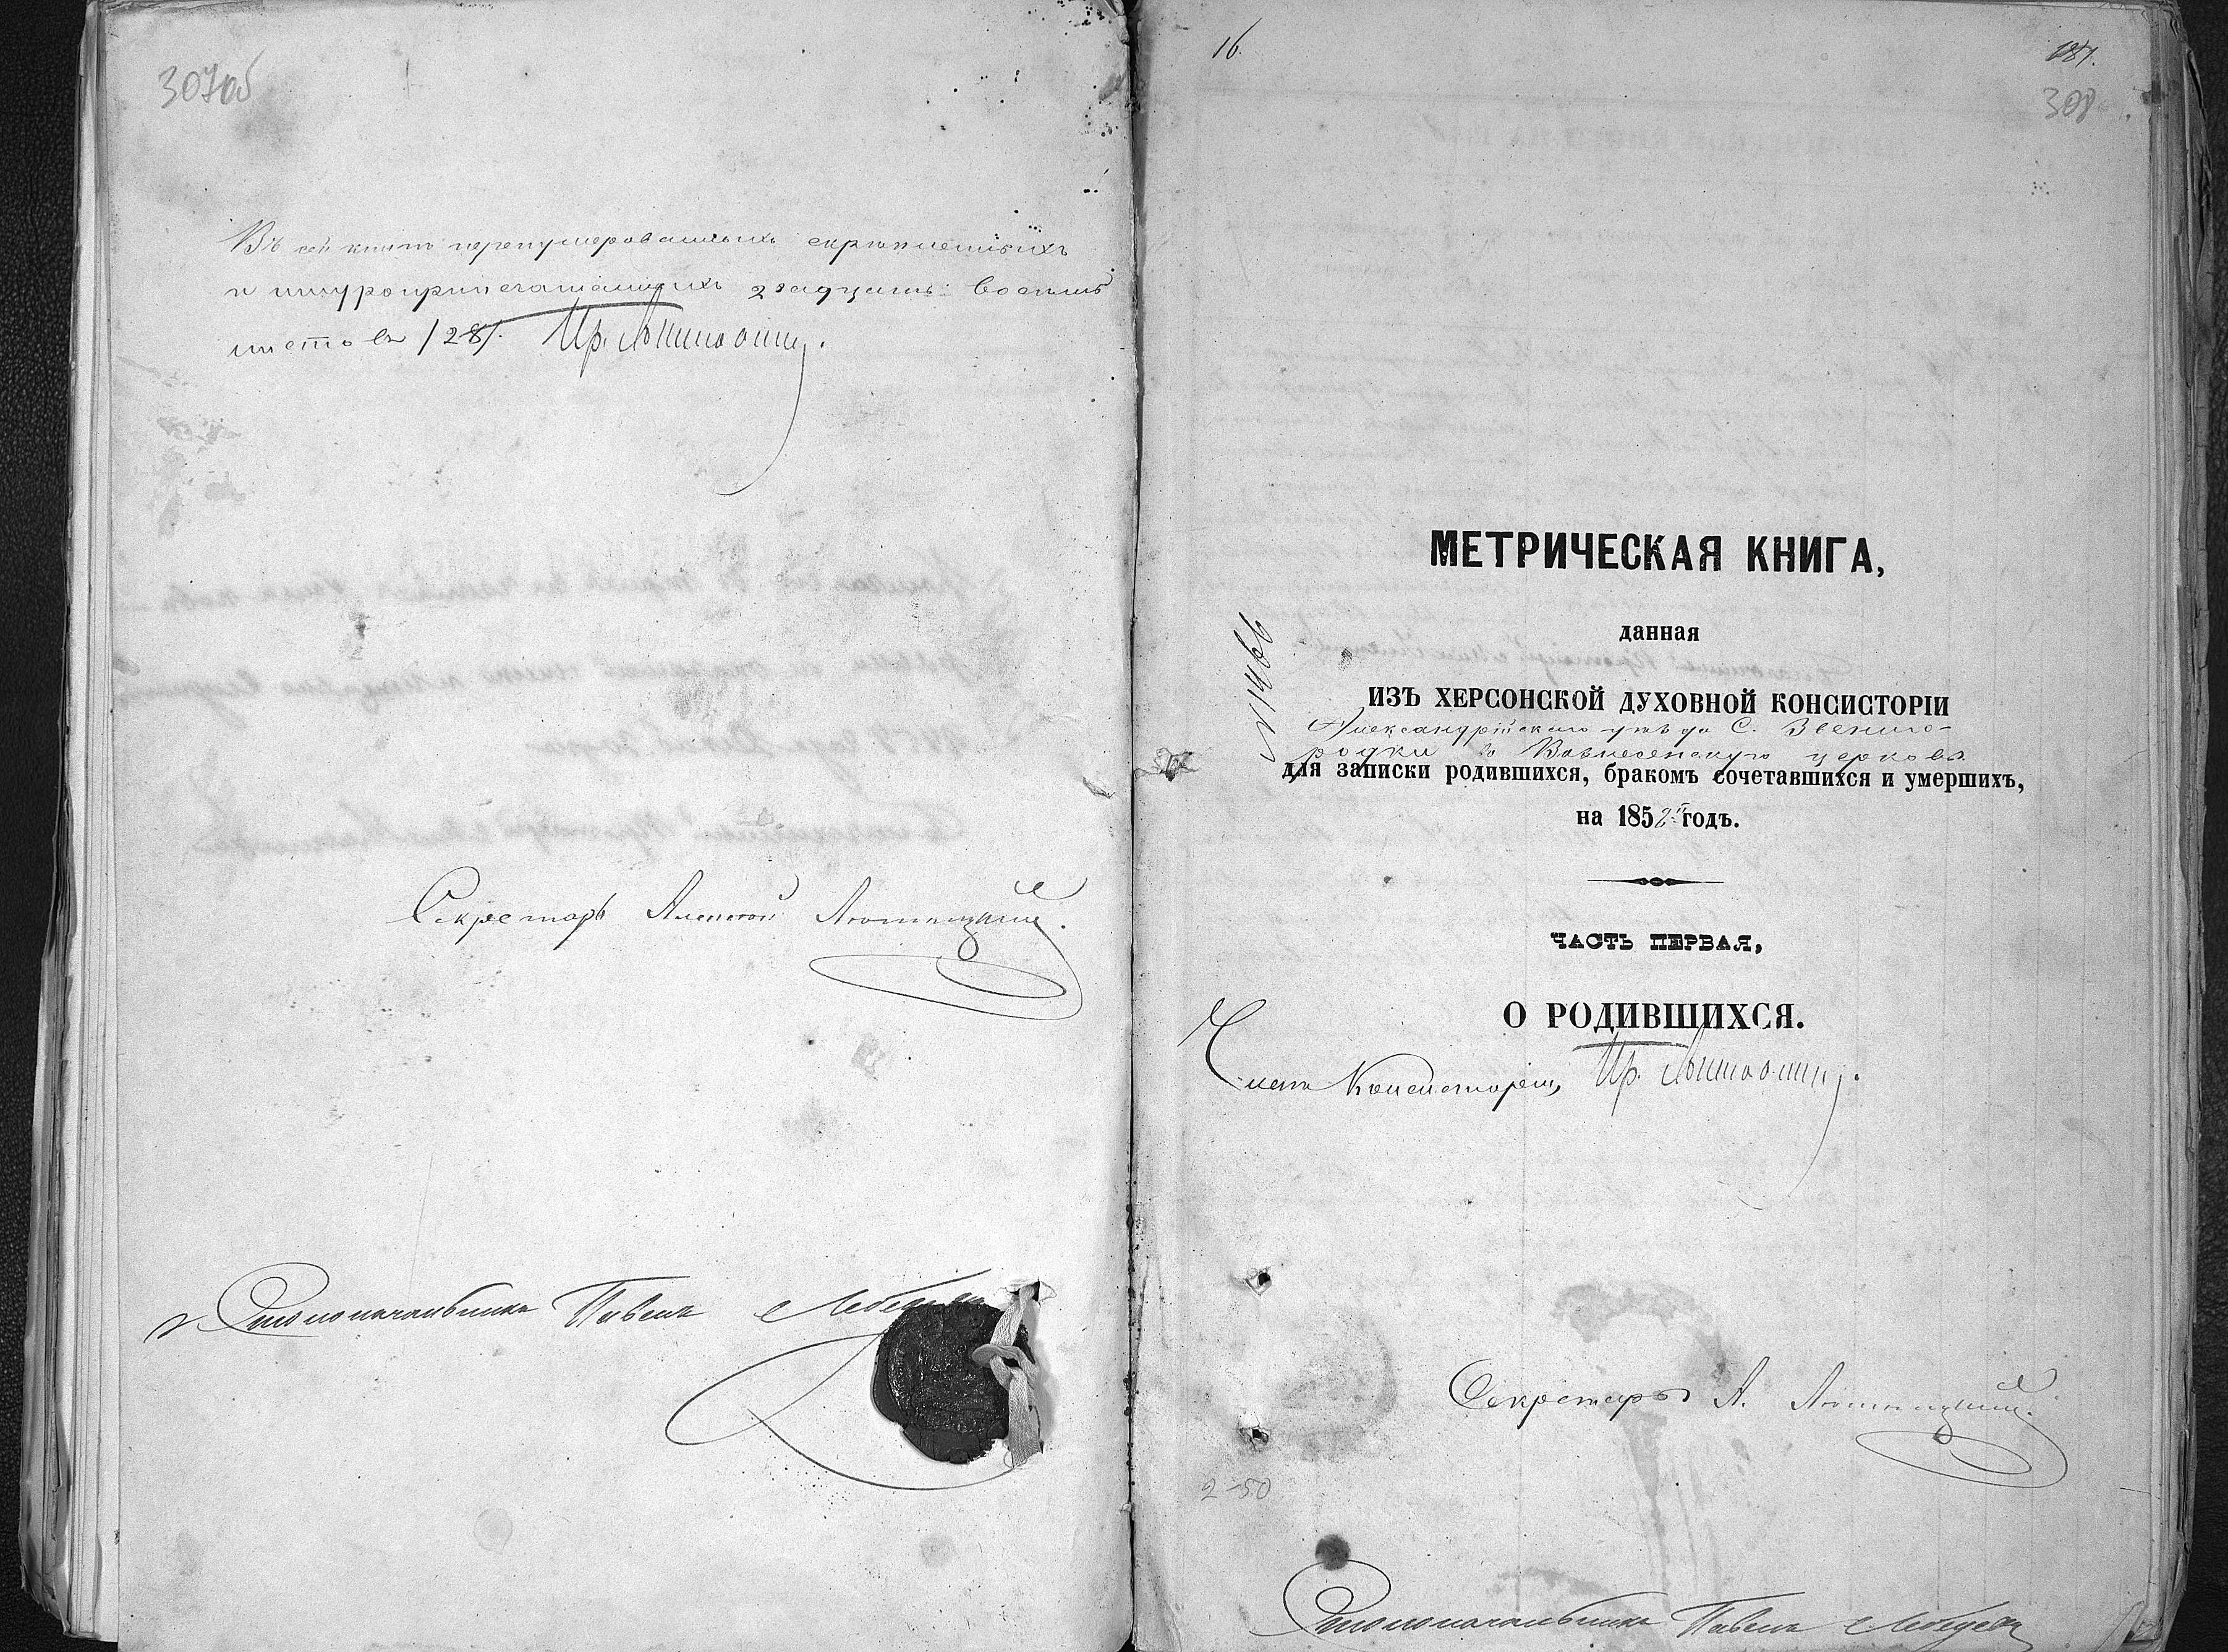 307об
Въ сей книгѣ перенумерованныхъ скрѣпленныхъ
и шнуроприпечатанныхъ двадцать восемь
листовъ /28/. Пр.
Секретарь Алексей
Столоначальникъ Павелъ Лебедевъ
16.
181.
308
МЕТРИЧЕСКАЯ КНИГА,
данная
N 1466
ИЗЪ ХЕРСОНСКОЙ ДУХОВНОЙ КОНСИСТОРІИ
Александрійскаго уѣзда С. Звениго-
родки въ Вознесенскую церковь
для записки родившихся, бракомъ сочетавшихся и умершихъ,
на 1852й годъ.
ЧАСТЬ ПЕРВАЯ,
О РОДИВШИХСЯ.
Членъ Консисторіи, Пр.
Секретарь А.
2-50
Столоначальникъ Павелъ Лебедевъ